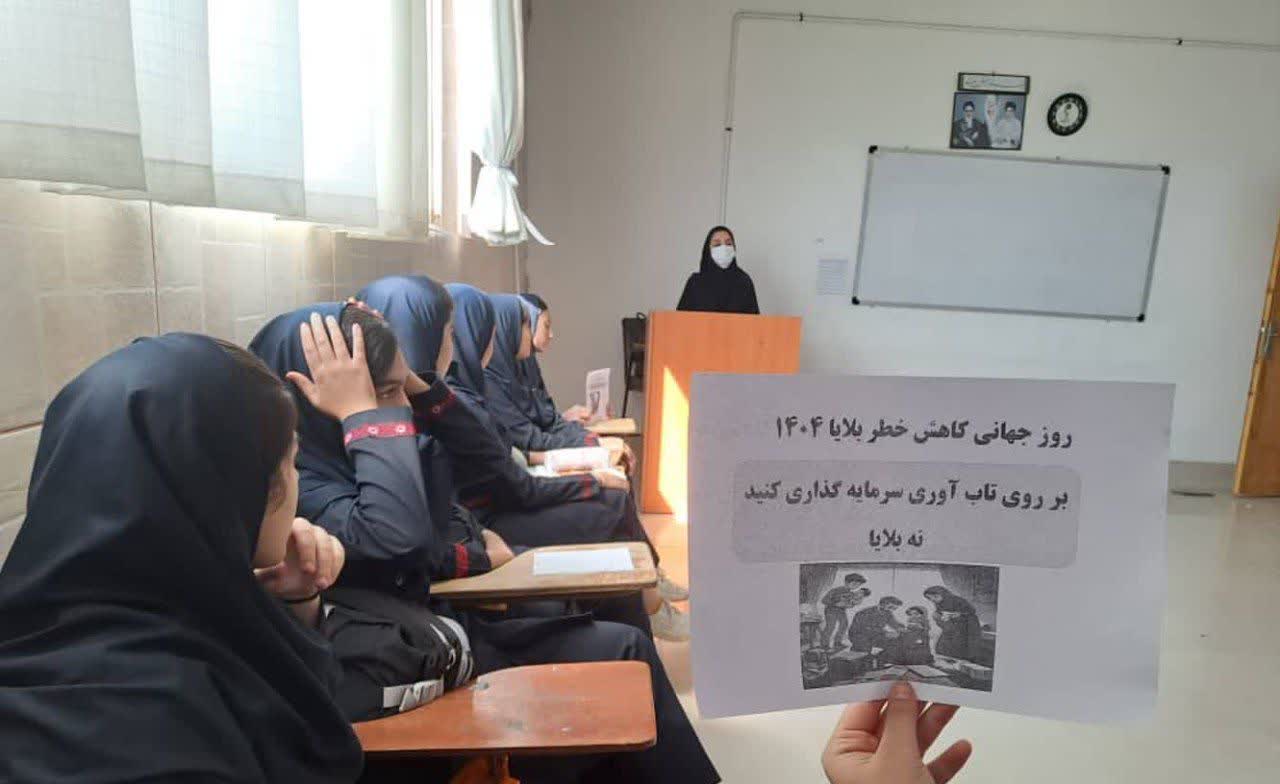 روز جهانی کاهش خطر بلایا ۱۴۰۴
بر روی تاب آوری سرمایه گذاری کنید
نه بلایا